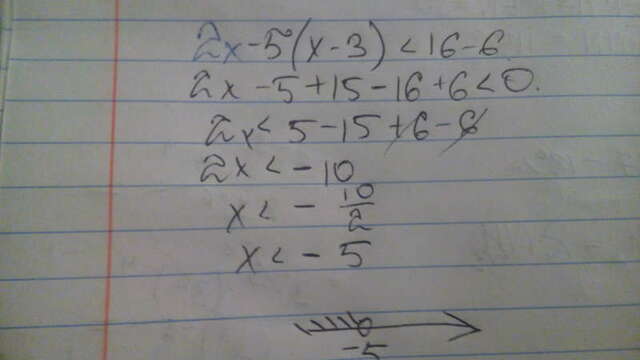 2x-5(x-3)<16-6
2x-5+15-16+6<0.
2x<5-15+6-6
2x<-10
x<-10/2
x<-5
-5